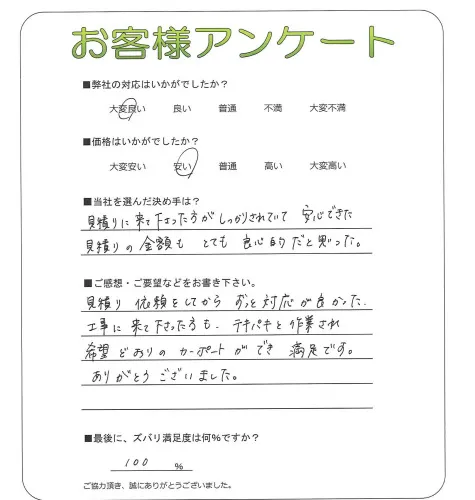 お客様アンケート
■弊社の対応はいかがでしたか？
大変良い 良い 普通 不満 大変不満
■価格はいかがでしたか？
大変安い 安い 普通 高い 大変高い
■当社を選んだ決め手は？
見積りに来て下さった方がしっかりされていて 安心できた
見積りの金額も とても 良心的だと思った。
■ご感想・ご要望などをお書き下さい。
見積り 依頼をしてから ずっと対応が良かった.
工事に来て下さった方も、テキパキと作業され
希望どおりの カーポートができ 満足です。
ありがとうございました。
■最後に、ズバリ満足度は何％ですか？
100 ％
ご協力頂き、誠にありがとうございました。